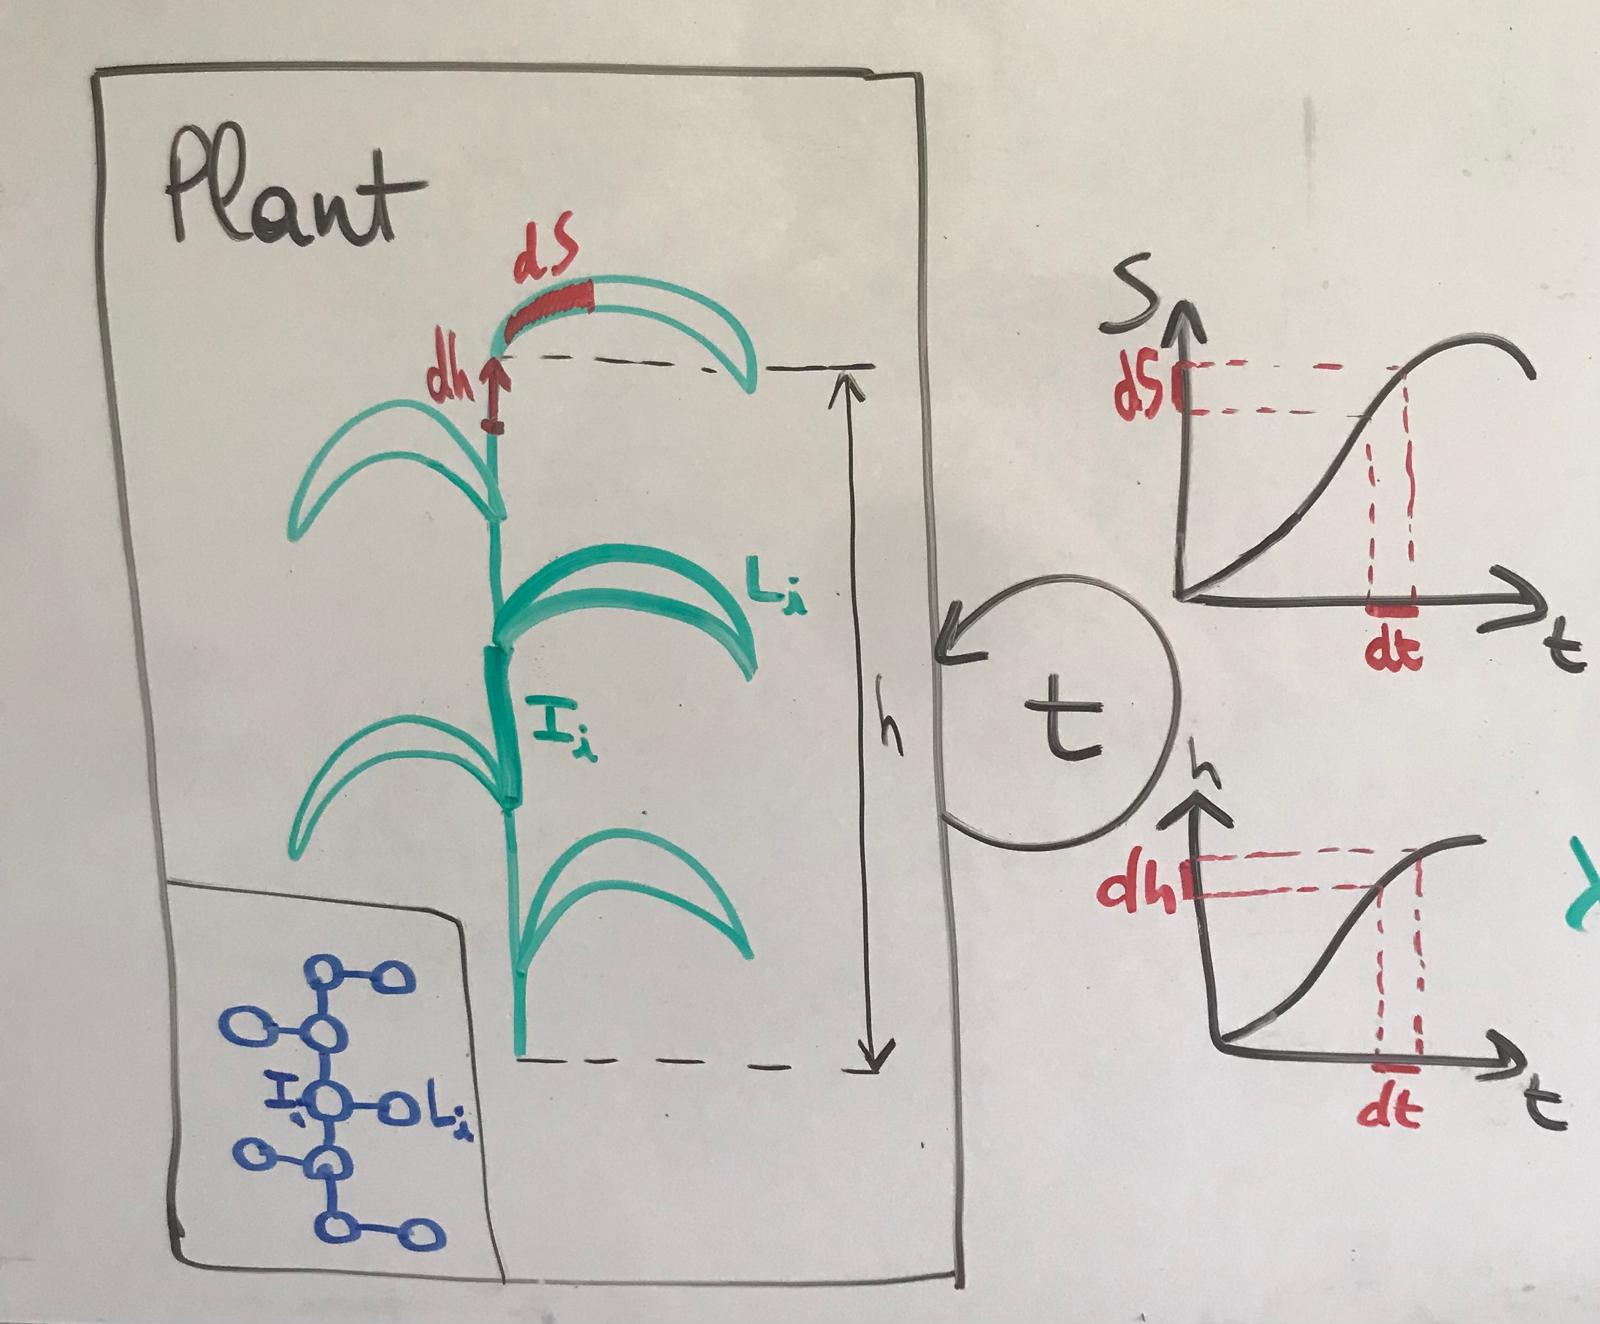 Plant
dS
dh
Li
Ii
h
t
Ii
Li
S
dS
dt
t
h
dh
dt
t